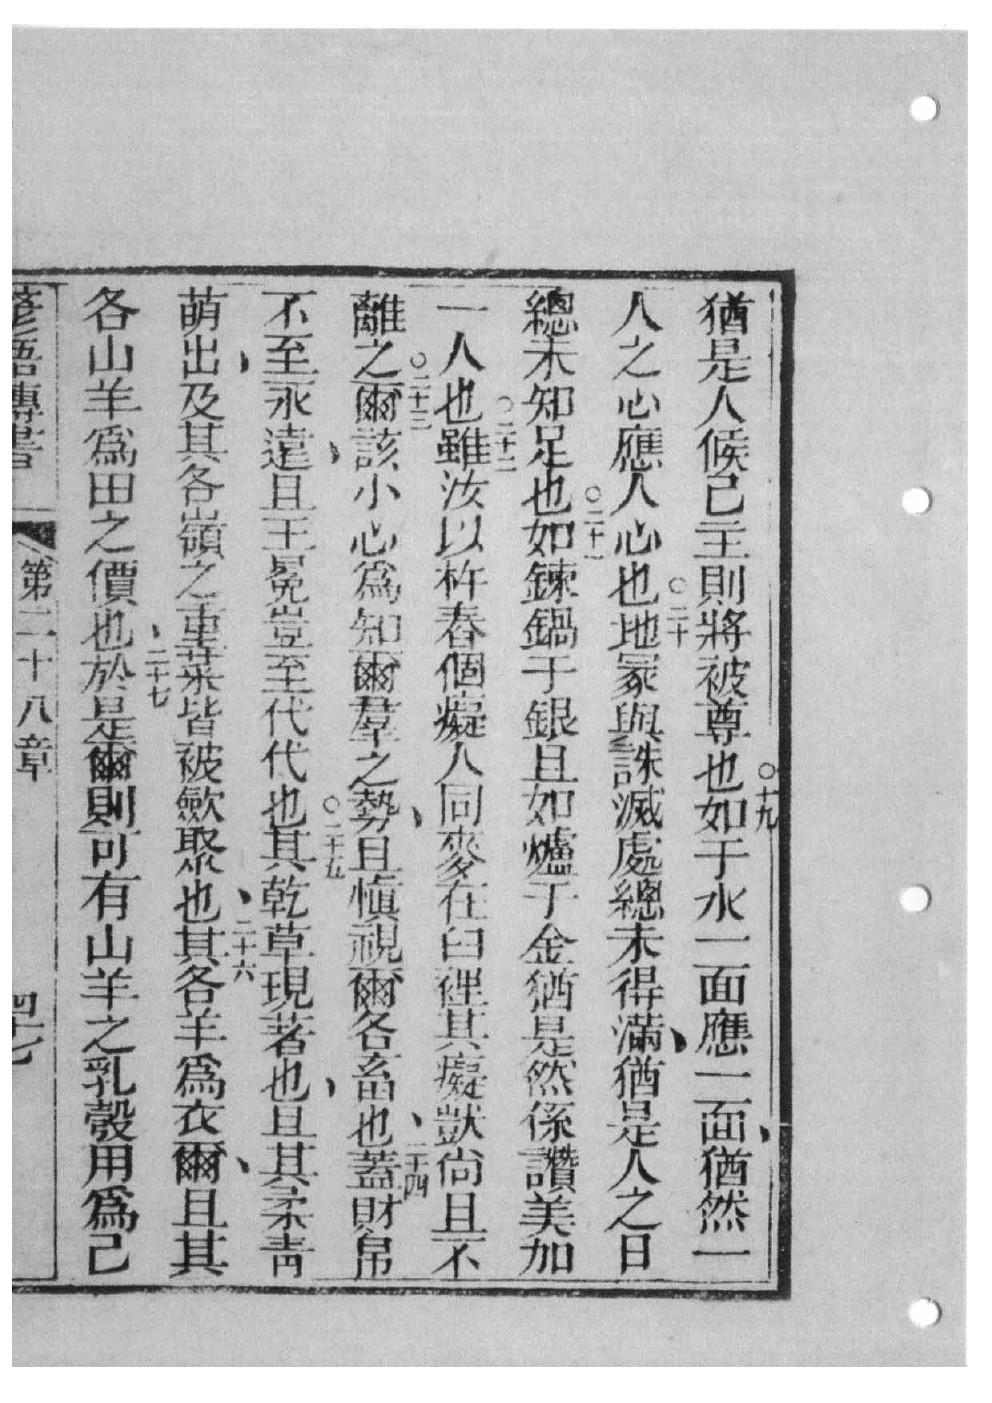 猶是人候己主則將被尊也○十九如于水一面應一面猶然一
人之心應人心也○二十地冢與誅滅處總未得滿猶是人之目
總未知足也○二十一如鍊鍋于銀且如爐于金猶是然係讚美加
一人也○二十二雖汝以杵舂個癡人同麥在臼裡其癡獃尚且不
離之○二十三爾該小心為知爾羣之勢且愼視爾各畜也二十四蓋財帛
不至永遠且王冕豈至代代也○二十五其乾草現著也且其柔靑
萌出及其各嶺之重菜皆被歛聚也二十六其各羊爲衣爾且其
各山羊爲田之價也二十七於是爾則可有山羊之乳彀用爲己
諺語傳書 第二十八章 四十七